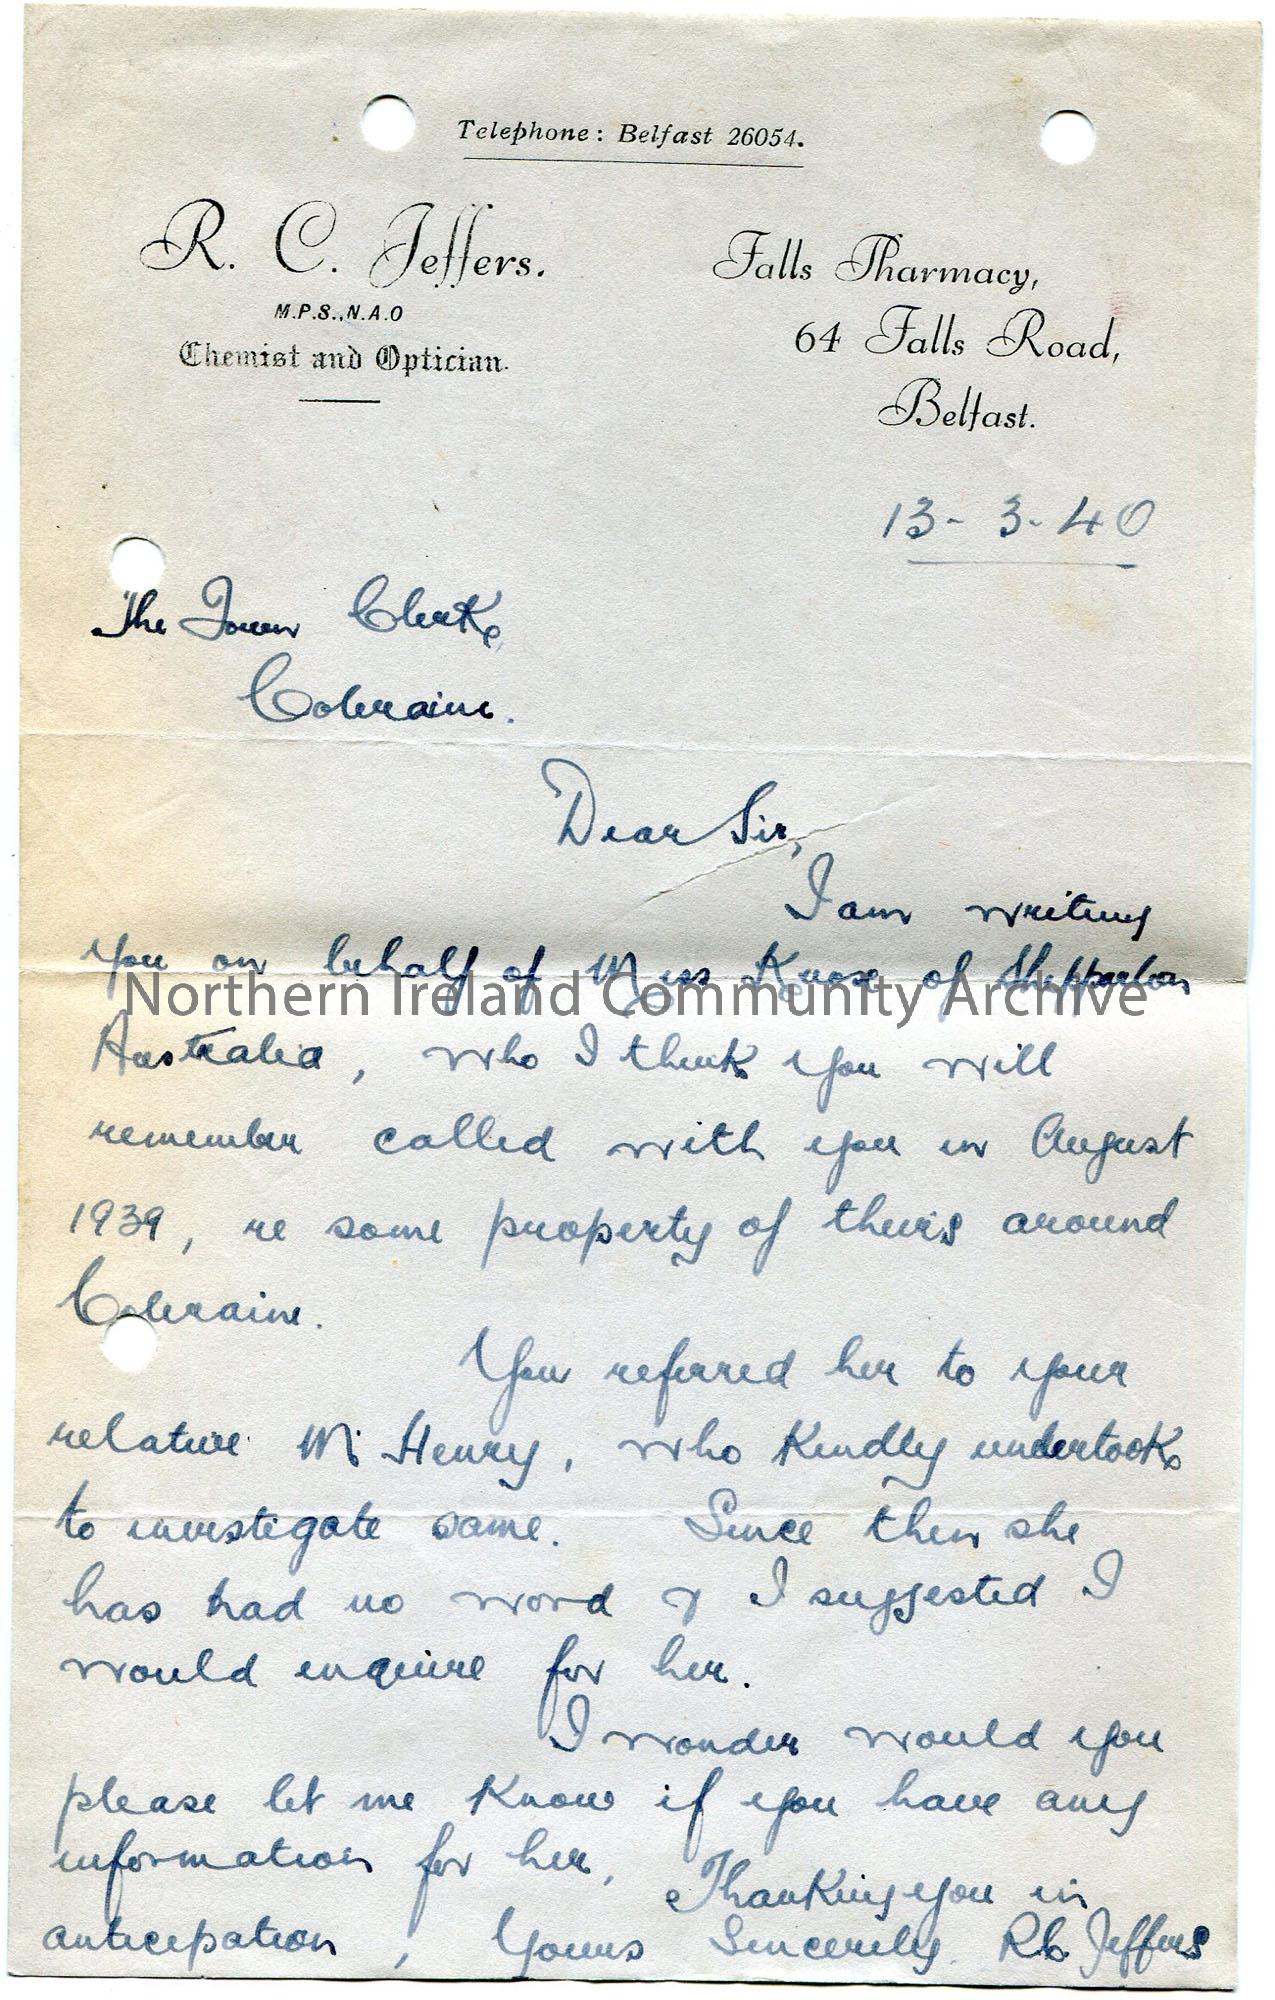 Telephone: Belfast 26054.
R. C. Jeffers.
M.P.S., N.A.O
Chemist and Optician.
Falls Pharmacy,
64 Falls Road,
Belfast.
13-3-40
The Town Clerk,
Coleraine.
Dear Sir,
I am writing
you on behalf of Miss Knox of Shepparton
Northern Ireland Community Archive
Australia, who I think you will
remember called with you in August
1939, re some property of theirs around
Coleraine.
You referred her to your
relative Mr Henry, who kindly undertook
to investigate same. Since then she
has had no word & I suggested I
would enquire for her.
I wonder would you
please let me know if you have any
information for her, Thanking you in
anticipation, Yours Sincerely. RC Jeffers